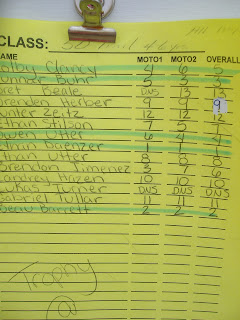 CLASS: 50
NAME MOTO1 MOTO2 OVERALL
Colby Clancy 4 6 5
Connor Buhr 5 3 3
Bret Beale DNS 13 13
Brenden Herber 9 9 9
Hunter Zeitz 12 12 12
Ethan 7 5 7
Owen Utter 6 4 4
Ethan Baenzer 1 1 1
Ethan Utter 8 8 8
Brendon Jimenez 3 7 6
Landrey Hazen 10 10 10
Lukas Turner DNS DNS DNS
Gabriel Tullar 11 11 11
Beau Barrett 2 2 2
Trophy
@